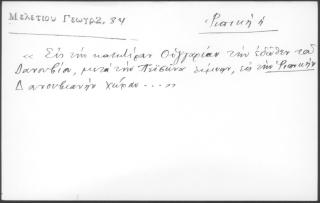 Μελετίου Γεωγρ. 84
Ῥιπική ἡ
« Εἰς τὴν κατωτέραν Οὑγγαρίαν τὴν ἐδῶθεν τοῦ
Δανουβίου, μετὰ τὴν λίμνην, εἰς τὴν
Δανουβιανὴν χώραν .... »